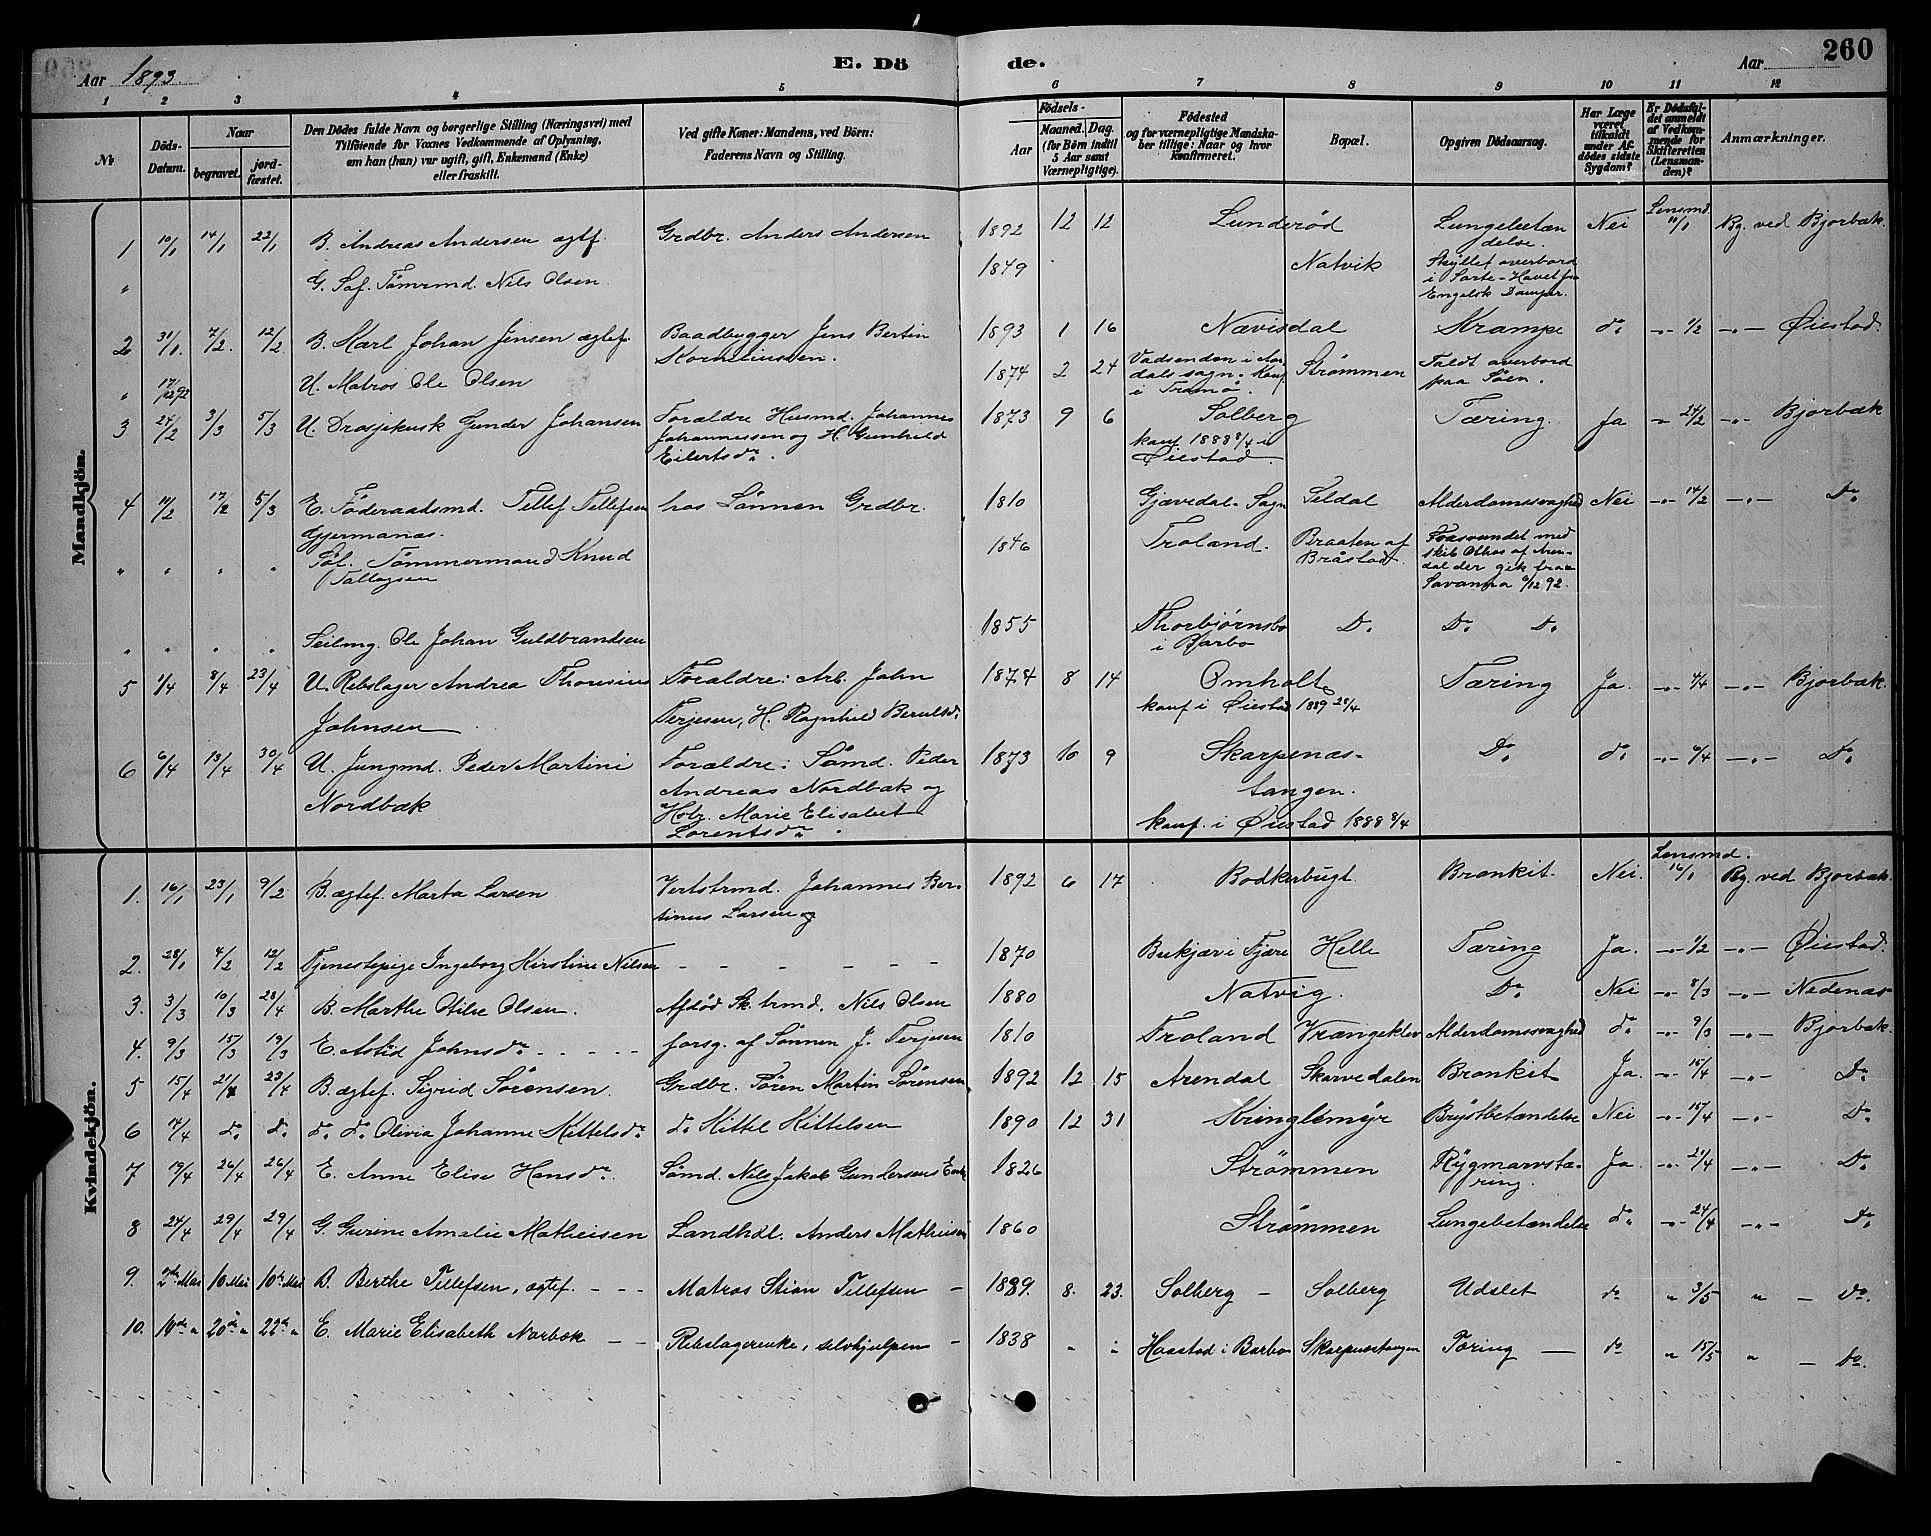 Aar 1893. E. Dö de. Aar 260
1 2 3 4 5 6 7 8 9 10 11 12
№ Döds-Datum. Naar begravet. jord-fæstet. Den Dödes fulde Navn og borgerlige Stilling (Næringsvei) med Tilföiende for Voxnes Vedkommende af Oplysning, om han (hun) var ugift, gift, Enkemand (Enke) eller fraskilt. Ved gifte Koner: Mandens, ved Börn: Faderens Navn og Stilling. Födsels- Aar Maaned. Dag. (for Börn indtil 5 Aar samt Værnepligtige). Födested og for værnepligtige Mandskaber tillige: Naar og hvor konfirmeret. Bopæl. Opgiven Dödsaarsag. Har Læge været tilkaldt under Afdödes sidste Sygdom? Er Dödsfaldet anmeldt af Vedkommende for Skifteretten (Lensmanden)? Anmærkninger.
Mandkjön.
1 10/1 14/1 22/1 B. Andreas Andersen ægtf. Grdbr. Anders Andersen 1892 12 12 Lunderød Lungebetændelse. Nei Lensmd. 11/1 Bg. ved Bjorbæk.
" G. Søf. Tømrmd. Nils Olsen. 1849 Natvik Skyllet overbord i Sorte-Havet fra Engelsk Dampsk.
2 31/1 7/2 12/2 B. Karl Johan Jensen ægtef. Baadbygger Jens Bertin Korneliussen. 1893 1 16 Nævisdal Krampe do -"- 1/2 -"- Øiestad.
" 17/12 92 U. Matros Ole Olsen 1874 2 24 Vadsenden i Aardals sogn. Konf. i Tromø. Strømmen Faldt overbord paa Søen.
3 24/2 3/3 5/3 U. Drosjekusk Gunder Johansen Forældre Husmd. Johannes Johannessen og H. Gunhild Eilertsdr. 1873 9 6 Solberg konf. 1888 8/4 i Øiestad. Tæring. Ja " 24/2 -"- Bjorbæk
4 11/2 17/2 5/3 E. Føderaadsmd. Tellef Tellefsen Gjermanæs. hos Sønnen Grdbr. 1810 Gjævedal-Sogn Seldal Alderdomssvaghed Nei -"- 14/2 -"- Do
" " " " Søf. Tømmermand Knud Tallagsen 1846 Froland. Braaten af Bråstad. Forsvundet med skib Athos af Arendal der gik fra Savanna 6/12 92.
" " " " Seilmg. Ole Johan Guldbrandsen 1855 Thorbjørnsbo i Barbo Do Do Do
5 1/4 8/4 23/4 U. Rebslager Andrea Thonsius Johnsen Forældre: Arb. John Terjesen, H. Ragnhild Berultsdr 1874 8 14 Omholt konf i Øiestad 1889 28/4 Tæring Ja. -"- 4/4 -"- Bjorbæk.
6 6/4 13/4 30/4 U. Jungmd. Peder Martini Nordbæk Forældre: Sømd. Peder Andreas Nordbæk og Hstr. Marie Elisabet Lorentsdr. 1873 10 9 Skarpenæstangen. konf. i Øiestad 1888 8/4 Do do -"- 6/4 -"- Do
Kvindekjön.
1. 16/1 23/1 9/2 B. ægtef. Marta Larsen Verkstrmd. Johannes Bertinus Larsen og 1892 6 17 Bodkerbugt Bronkit. Nei. Lensmd. 16/1 Bg. ved Bjorbæk.
2. 28/1 4/2 12/2 Tjenestepige Ingeborg Kirstine Nilsen - - - - - - 1870 Bukjær i Fjære Helle Tæring Ja. -"- 1/2 -"- Øiestad.
3. 3/3 10/3 28/4 B. Marthe Otilie Olsen. Afdød Sk.tmmd. Nils Olsen 1880 Natvig. Do Nei -"- 8/3 -"- Nedenæs
4. 9/3 15/3 19/3 E. Astid Johnsdr. - - - - forsg. af Sønnen J. Terjesen 1810 Froland Vrængeklev Alderdomssvaghed do -"- 9/3 -"- Bjorbæk.
5 15/4 21/4 23/4 B. ægtef. Sigrid Sørensen. Grdbr. Søren Martin Sørensen 1892 12 15 Arendal Skarvedalen Bronkit Ja. -"- 15/4 -"- Do
6 14/4 do do do do Olivia Johanne Kittelsdr. do Kittel Kittelsen 1890 12 31 Kringlemyr Brystbetændelse Nei -"- 15/4 -"- Do
7 19/4 26/4 26/4 E. Anne Elise Hansdr. Sømd. Nils Jakob Gundersens Enke 1826 Strømmen Rygmarvstæring. Ja -"- 21/4 -"- Do
8 24/4 29/4 29/4 G. Gurine Amalie Mathiesen Landhdl. Anders Mathiesen 1860 Strømmen Lungebetændelse do -"- 24/4 -"- Do
9. 2den Mai 10 Mai 10de Mai B. Berthe Tellefsen, ægtef. - - - Matros Stian Tellefsen - 1889. 8. 23. Solberg - Solberg Udslet do " 3/5 " - Do.
10. 14de " 20de " 22de " E. Marie Elisabeth Norbæk - - Rebslagerenke, selvhjulpen - 1838 " " Haastad i Barbo Skarpnestangen Tæring - do " 15/5 " - Do.